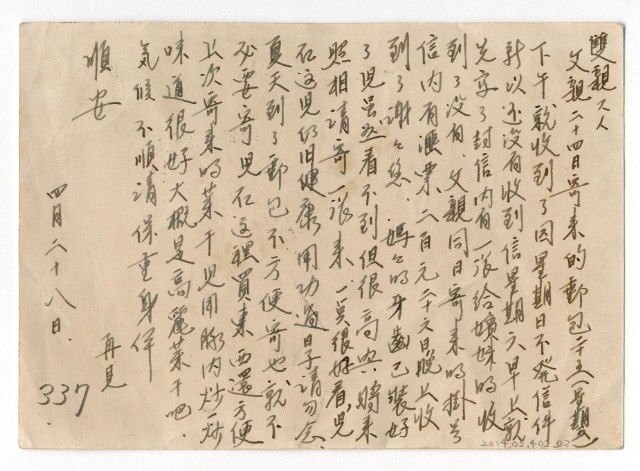 雙親大人
父親二十四日寄來的郵包二十五(星期
下午就收到了因星期日不發信件
所以还沒有收到信星期六早上就
先寫了封信內有一張給嬸妹的收
到了沒有.父親同日寄來的掛号
信內有滙票二百元二十六日晚上收
到了謝々您.媽々的牙齒已裝好
了児虽然看不到但很高兴.將來
照相請寄一張來.一定很好看.児
在這児仍旧健康用功過日子請勿念.
夏天到了郵包不方便寄也就不
必要寄児在這裡買東西還方便
上次寄來的菜干児用豚肉炒一炒
味道很好大概是高麗菜干吧.
氣候不順請保重身体
順安
再見
四月二十八日.
337
2014.02.402.02